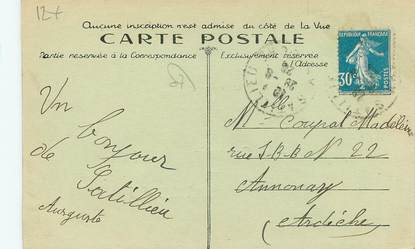 12+
Aucune inscription n'est admise du côté de la Vue
CARTE POSTALE
Partie réservée à la Correspondance
Exclusivement réservée
à l'Adresse
RÉPUBLIQUE FRANÇAISE
30c
POSTES
Un
bonjour
de Satillieu
Auguste
Mlle
Coupat Madeleine
rue J.B.B N 22
Annonay
Ardèche